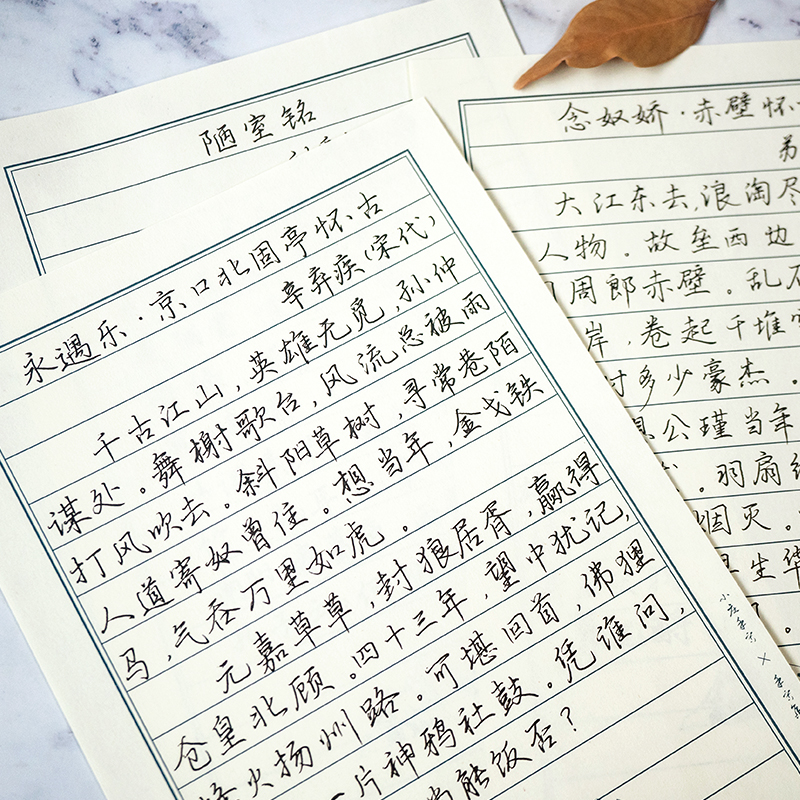 陋室铭
永遇乐·京口北固亭怀古
辛弃疾(宋代)
千古江山,英雄无觅,孙仲
谋处。舞榭歌台,风流总被雨
打风吹去。斜阳草树,寻常巷陌
人道寄奴曾住。想当年,金戈铁
马,气吞万里如虎。
元嘉草草,封狼居胥,赢得
仓皇北顾。四十三年,望中犹记,
火扬州路。可堪回首,佛狸
一片神鸦社鼓。凭谁问,
尚能饭否?
念奴娇·赤壁怀
苏
大江东去,浪淘尽
人物。故垒西边
周郎赤壁。乱石
岸,卷起千堆
多少豪杰。
公瑾当年
羽扇
灭。
生华